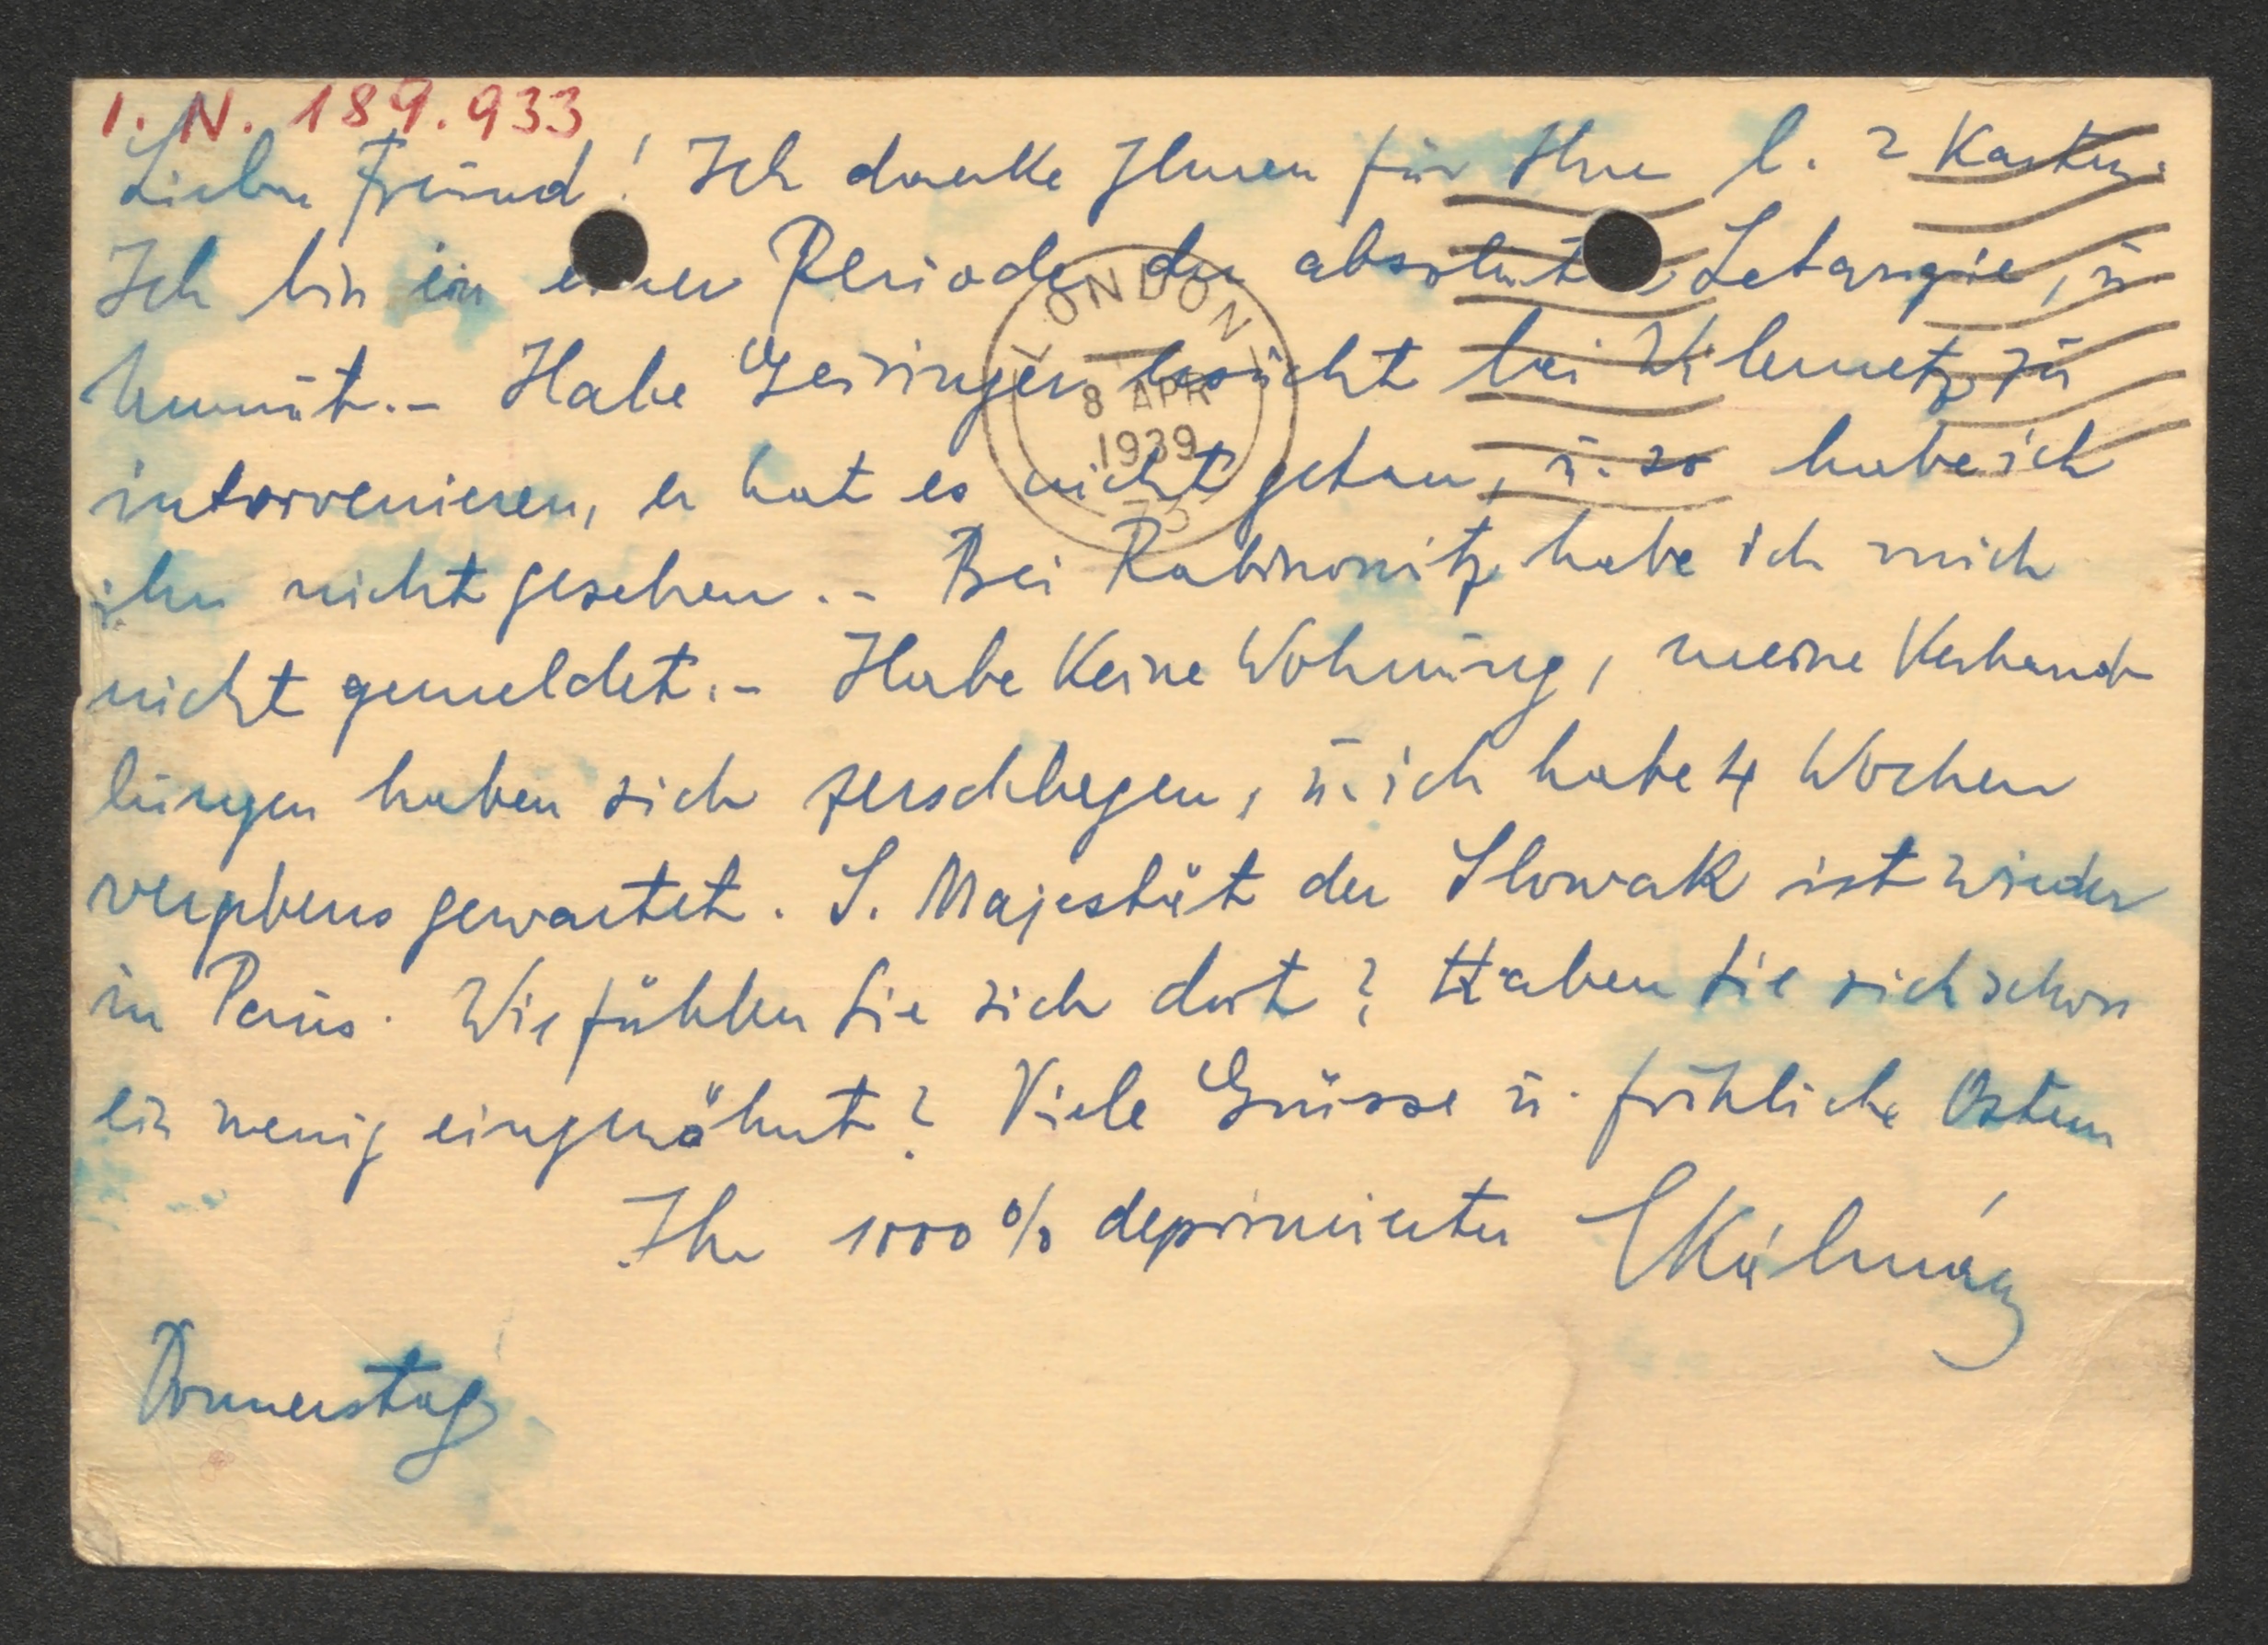 I.N. 189.933
Lieber Freund! Ich danke Ihnen für Ihre l. 2 Karten.
Ich bin in einer Periode der absoluten Letargie, u
Unmut.- Habe Geiringer ersucht bei Wilemetz zu
intervenieren, er hat es nicht getan, u. so habe ich
ihn nicht gesehen.- Bei Rabinowitz habe ich mich
nicht gemeldet.- Habe Keine Wohnung, meine Verhand-
lungen haben sich zerschlagen, u. ich habe 4 Wochen
vergebens gewartet. S. Majestät der Slowak ist wieder
in Paris. Wie fühlen Sie sich dort? Haben Sie sich schon
ein wenig eingewöhnt? Viele Grüsse u. fröhliche Ostern
Ihr 1000% deprimierter EKálmán
Donnerstag
LONDON
8 APR
1939